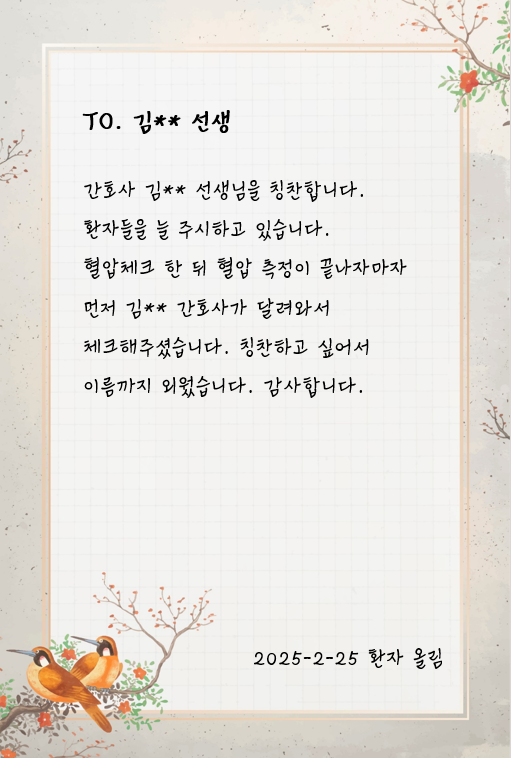 TO. 김** 선생
간호사 김** 선생님을 칭찬합니다.
환자들을 늘 주시하고 있습니다.
혈압체크 한 뒤 혈압 측정이 끝나자마자
먼저 김** 간호사가 달려와서
체크해주셨습니다. 칭찬하고 싶어서
이름까지 외웠습니다. 감사합니다.
2025-2-25 환자 올림